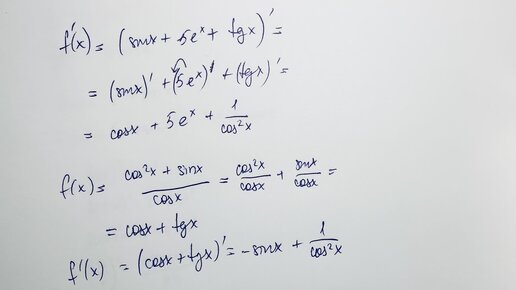 f'(x) = (sinx + 5e^x + tgx)' =
= (sinx)' + (5e^x)' + (tgx)' =
= cosx + 5e^x + 1/cos²x
f(x) = (cos²x + sinx)/cosx = cos²x/cosx + sinx/cosx =
= cosx + tgx
f'(x) = (cosx + tgx)' = -sinx + 1/cos²x